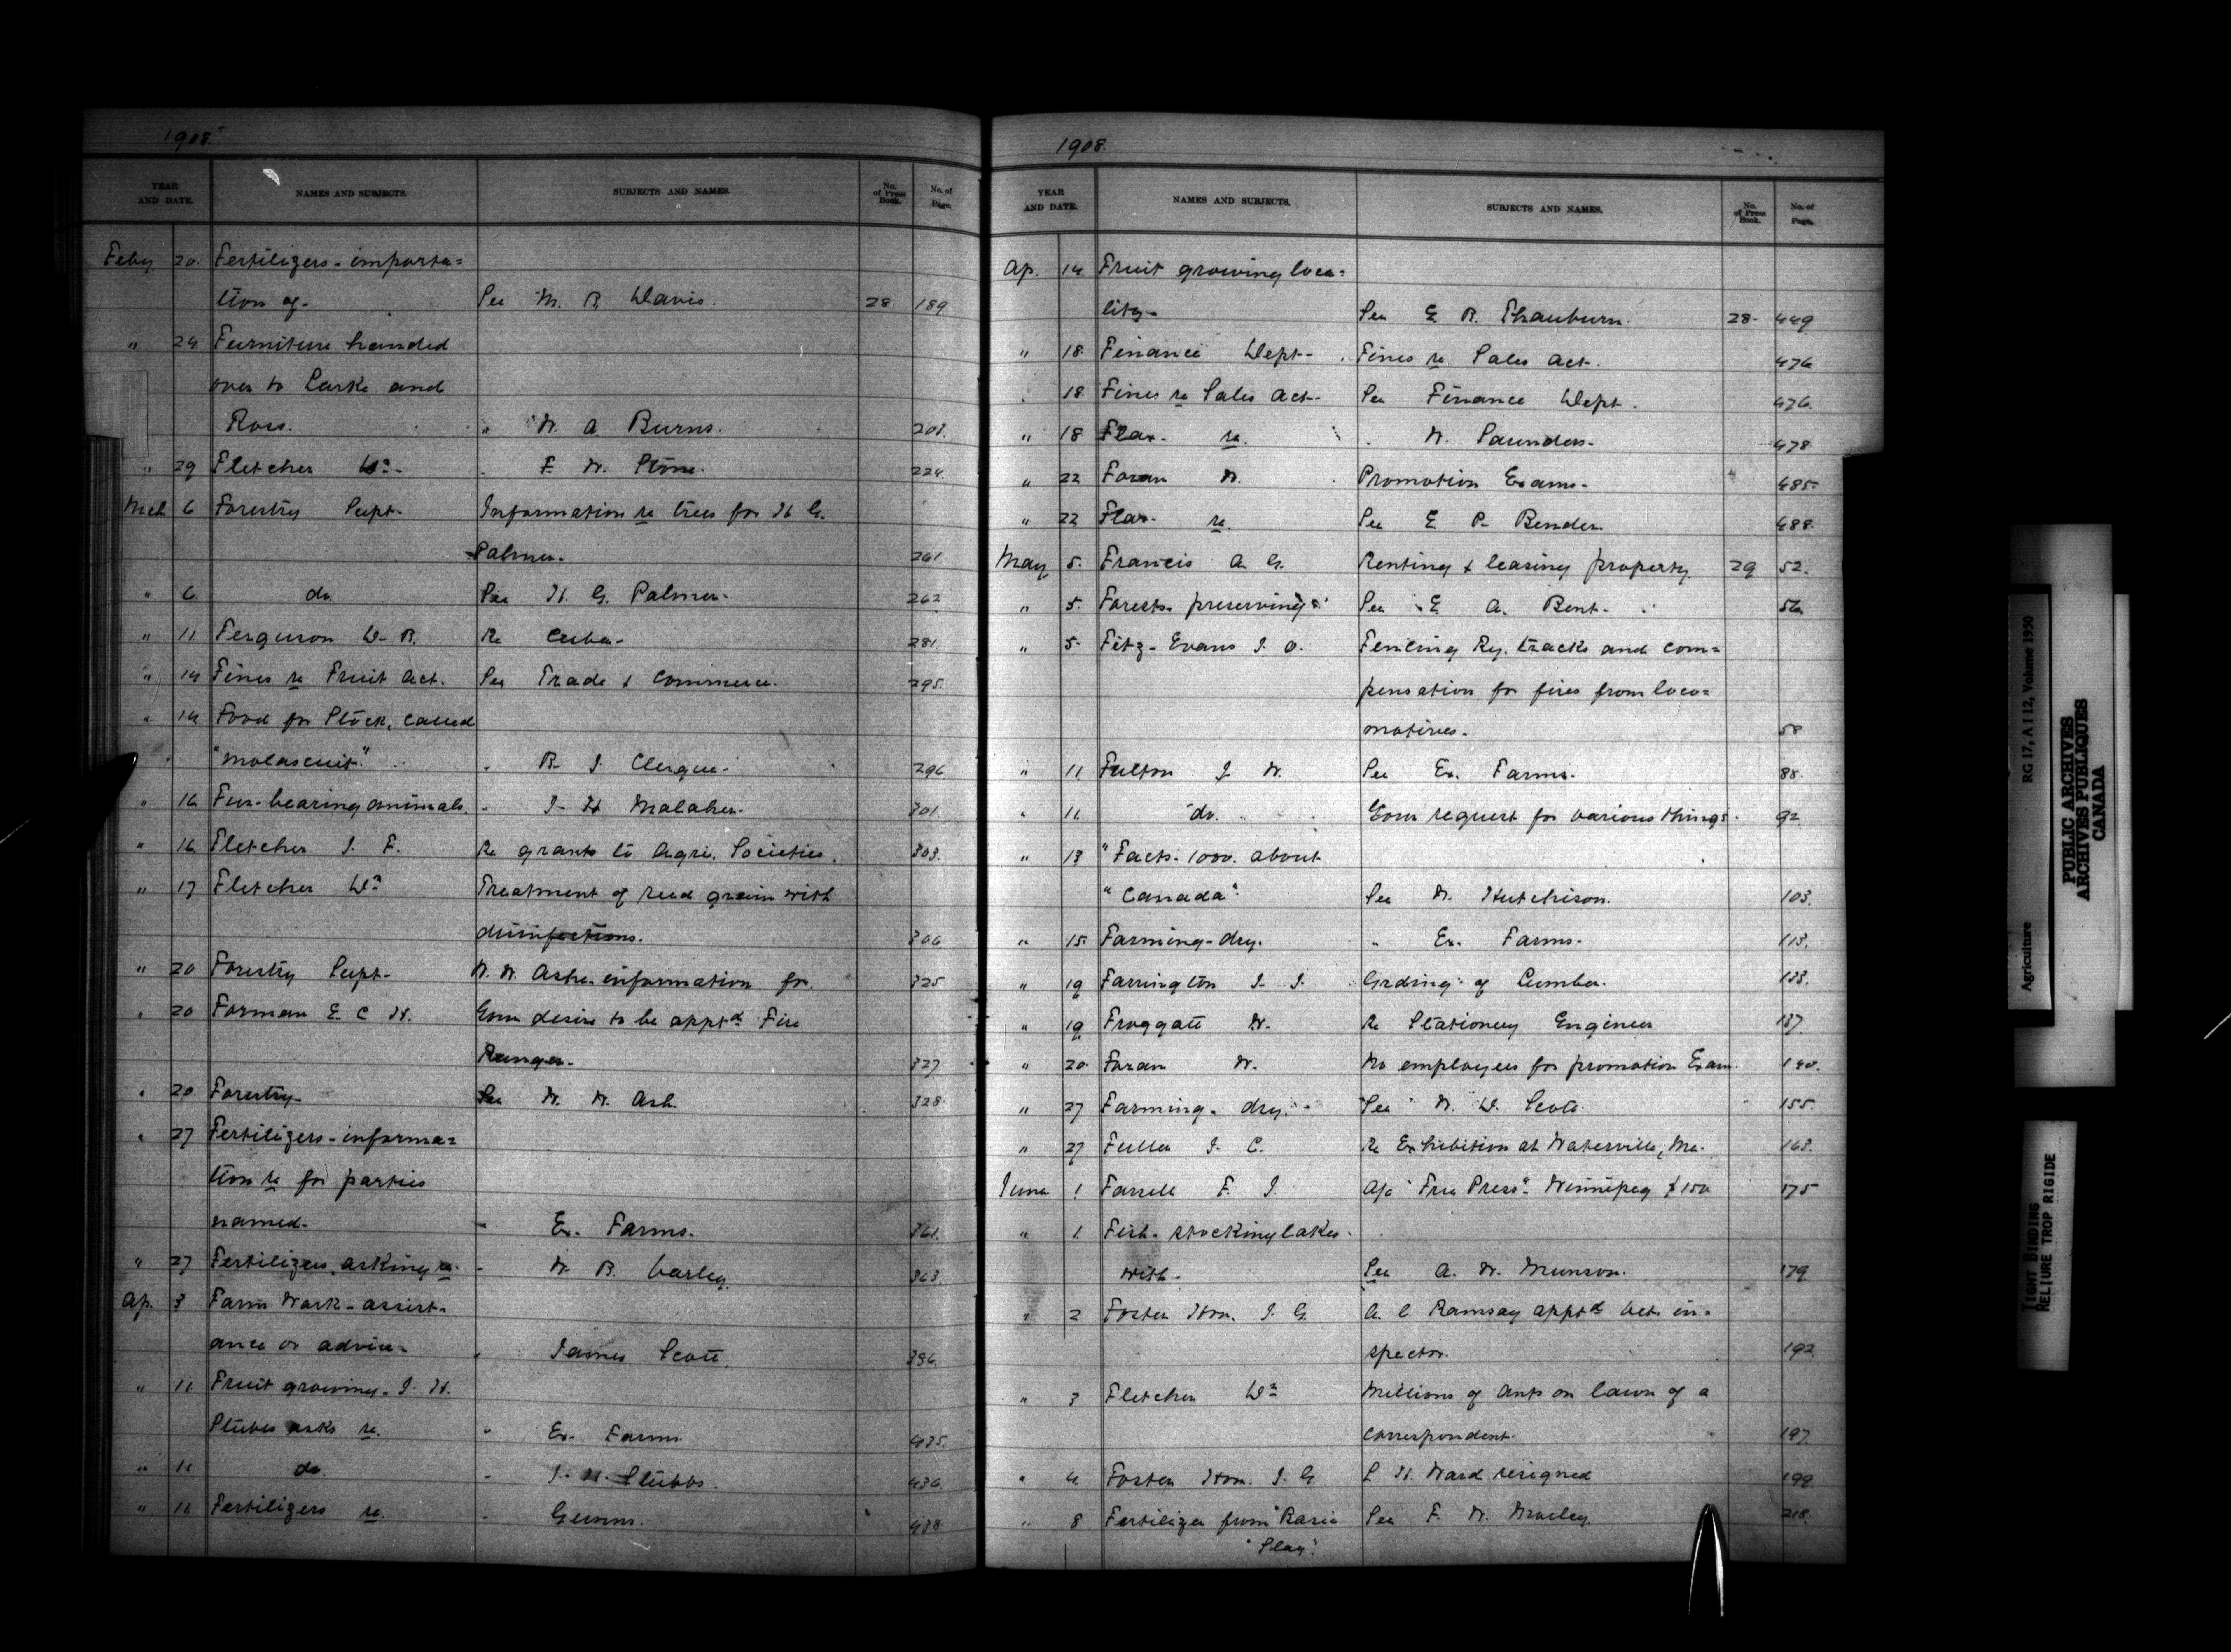 1908.
YEAR AND DATE. NAMES AND SUBJECTS. SUBJECTS AND NAMES. No. of Press Book. No. of Page.
Feby 20. Fertilizers - importa=
tion of - See M. R. Davis. 28 189
" 24 Furniture handed
over to Larke and
Ross. " W. A. Burns. 201.
" 29 Fletcher Dr - " F. W. Stone. 224.
Mch 6 Forestry Supt - Information re trees for H G.
Palmer - 261
" 6. do. See H. G. Palmer - 262
" 11 Ferguson D. R. Re Cuba - 281.
" 14 Fines re Fruit Act. See Trade & Commerce. 295.
" 14 Food for Stock, called
"Molascuit" " B. J. Clergue - 296
" 16 Fur-bearing animals. " J. H. 301
" 16 Fletcher J. F. Re grants to Agri. Societies. 303.
" 17 Fletcher Dr Treatment of seed grain with
306
" 20 Forestry Supt - W. W. Ashe - information for. 325
" 20 Forman E. C. H. desire to be apptd Fire
Ranger - 327
" 20 Forestry - See W. W. Ash 328
" 27 Fertilizers - informa=
tion re for parties
named - " Ex. Farms. 361.
" 27 Fertilizers, asking re. " W. B. Varley. 363.
Ap. 3 Farm Work - assist=
ance or advice - " James Scott. 396.
" 11 Fruit growing - J. H.
Stubbs asks re. " Ex. Farms. 435.
" 11 do " J. H. Stubbs. 436
" 11 Fertilizers re. " Gunns. 438
1908.
YEAR AND DATE. NAMES AND SUBJECTS. SUBJECTS AND NAMES. No. of Press Book. No. of Page.
Ap. 14 Fruit growing loca=
lity - See E. R. 28 - 449
" 18 Finance Dept - Fines re Sales Act. 476
18 Fines re Sales Act - See Finance Dept. 476.
" 18 Flax - re. " W. Saunders - 478
" 22 Foran W. Promotion Exams - 485 -
" 22 Flax - re. See E. P. Bender. 488.
May 5. Francis A. G. Renting & leasing property. 29 52.
" 5. Forests - preserving See E. A. Bent - 56
" 5 - Fitz-Evans J. O. Fencing Ry. tracks and com=
pensation for fires from loco=
motives - 58
" 11 Fulton J. W. See Ex. Farms - 88.
" 11 do. request for various things 92
" 13 "Facts - 1000 about
"Canada" See W. Hutchison. 103.
" 15 Farming - dry. " Ex. Farms - 113.
" 19 Farrington J. J. Grding of Lumber. 133.
" 19 Froggatt W. Re Stationery Engineer 137
" 20 Foran W. No employees for promotion Exam. 140.
" 27 Farming - dry. - See W. D. Scott. 155.
" 27 Fuller J. C. Re Exhibition at Waterville, Me. 163.
June 1 Farrell F. J. A/c "Free Press" Winnipeg $150 175
" 1 Fish - stocking lakes -
with - See A. W. Munson. 179
" 2 Foster Hon. J. G. A. E. Ramsay apptd Vet. in=
spector. 192
" 3 Fletcher Dr Millions of ants on lawn of a
correspondent. 197
" 4 Foster Hon. J. G. L. H. Ward resigned 199
" 8 Fertilizer from "Basic See F. W. 218.
"Slag".
Agriculture RG 17, A I 12, Volume 1950
PUBLIC ARCHIVES
ARCHIVES PUBLIQUES
CANADA
TIGHT BINDING
RELIURE TROP RIGIDE